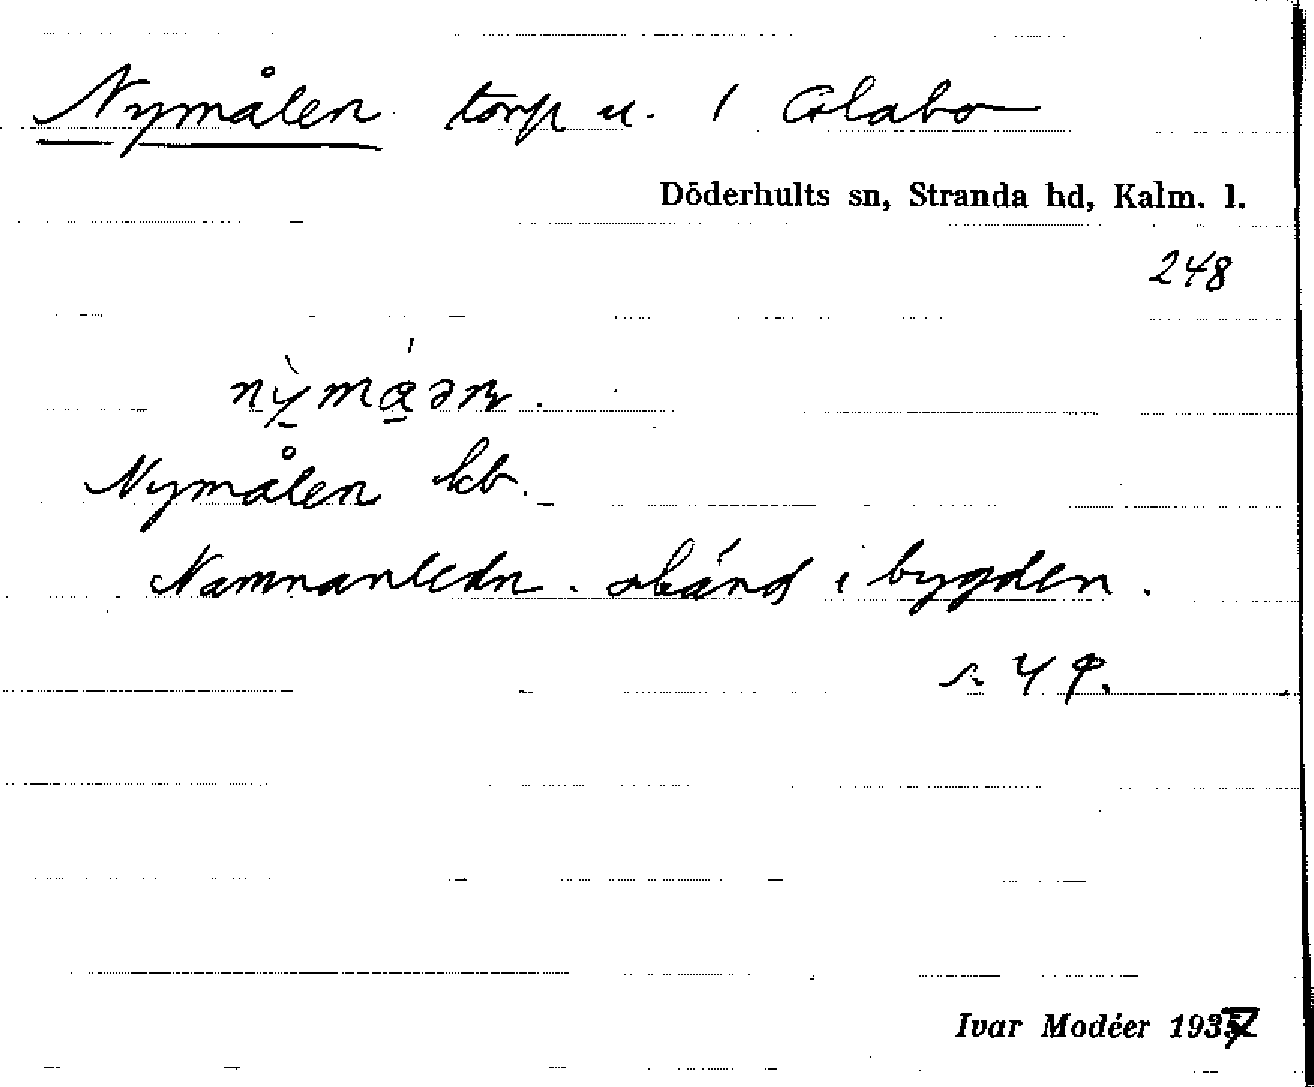 Nymålen torp u. 1 Glabo
Döderhults sn, Stranda hd, Kalm. l.
248
Nymålen kb.
Namnanledn. okänd i bygden.
s. 49.
Ivar Modéer 193